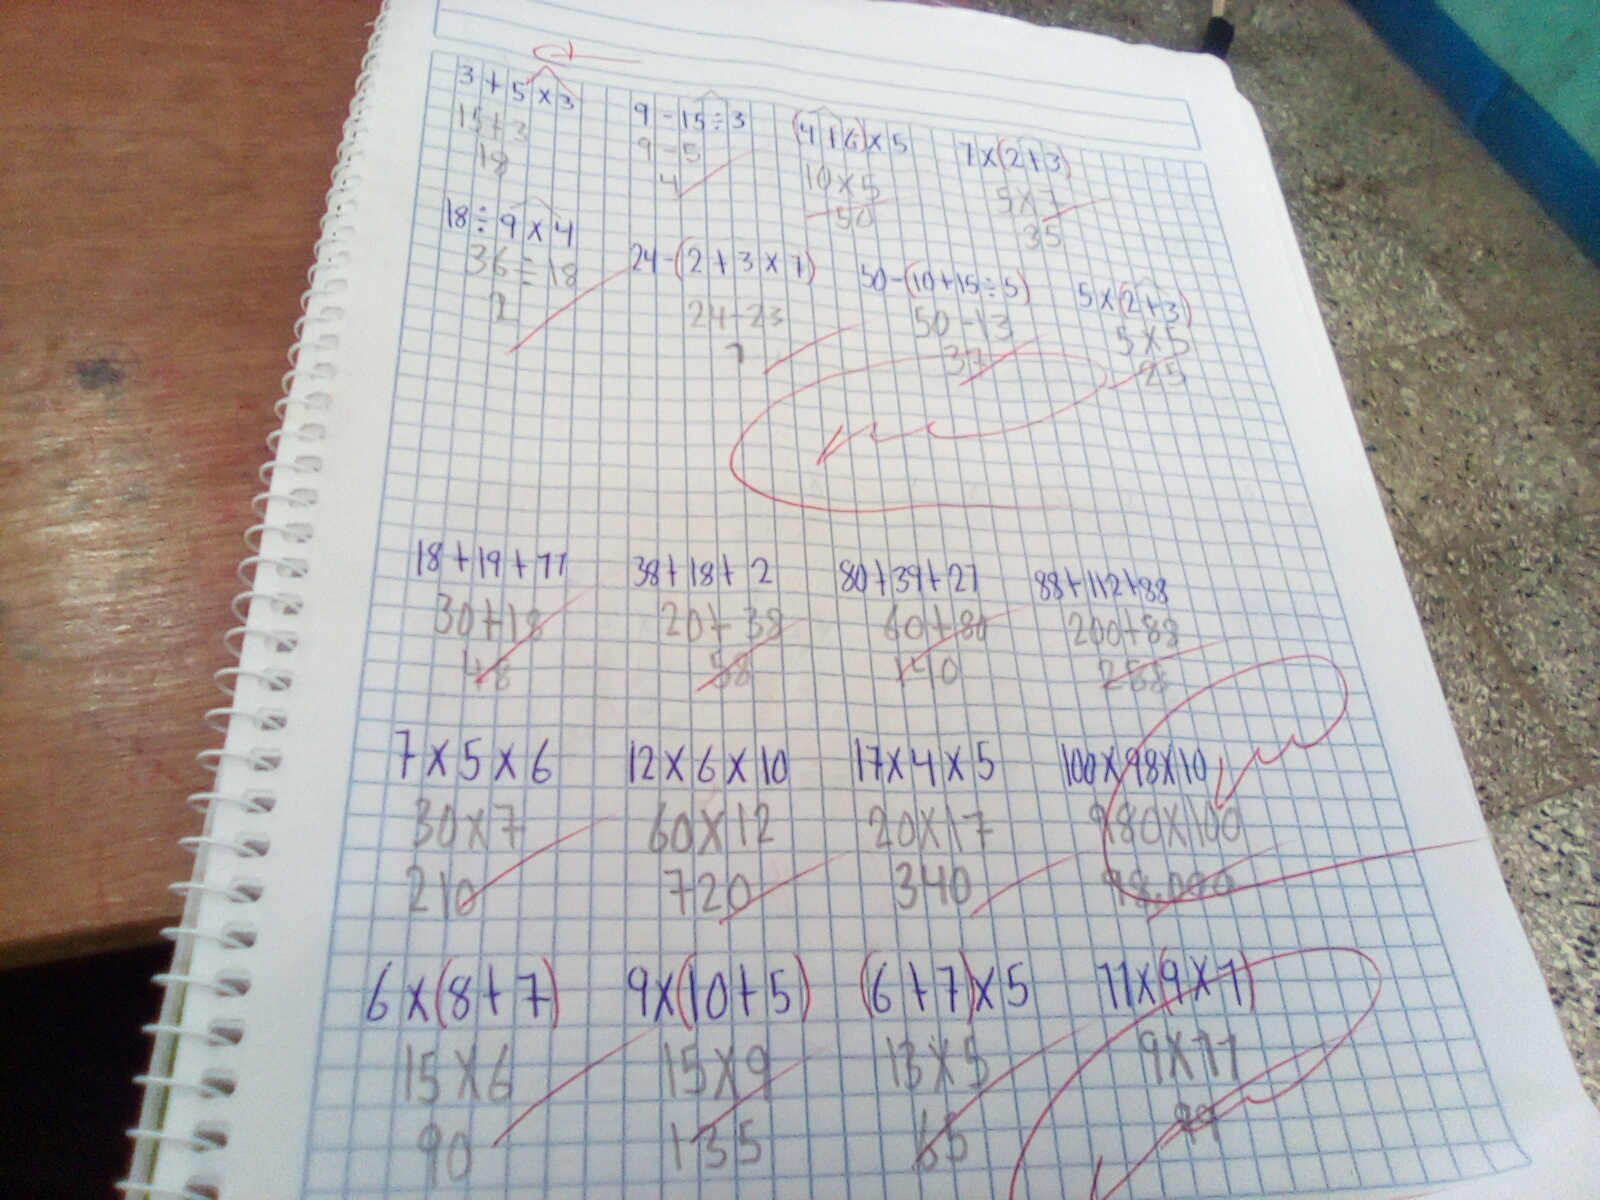 3 + 5 x 3
15+3
18
9 - 15 ÷ 3
9 - 5
4
(4+6)x 5
10x5
50
7x(2+3)
5x7
35
18 ÷ 9 x 4
36 ÷ 18
2
24-(2+3x7)
24-23
1
50-(10+15÷5)
50-13
37
5x(2+3)
5x5
25
18+19+11
30+18
48
38+18+2
20+38
58
80+39+21
60+80
140
88+112+88
200+88
288
7x5x6
30x7
210
12x6x10
60x12
720
17x4x5
20x17
340
100x98x10
980x100
98,000
6x(8+7)
15x6
90
9x(10+5)
15x9
135
(6+7)x5
13x5
65
11x(9x1)
9x11
99